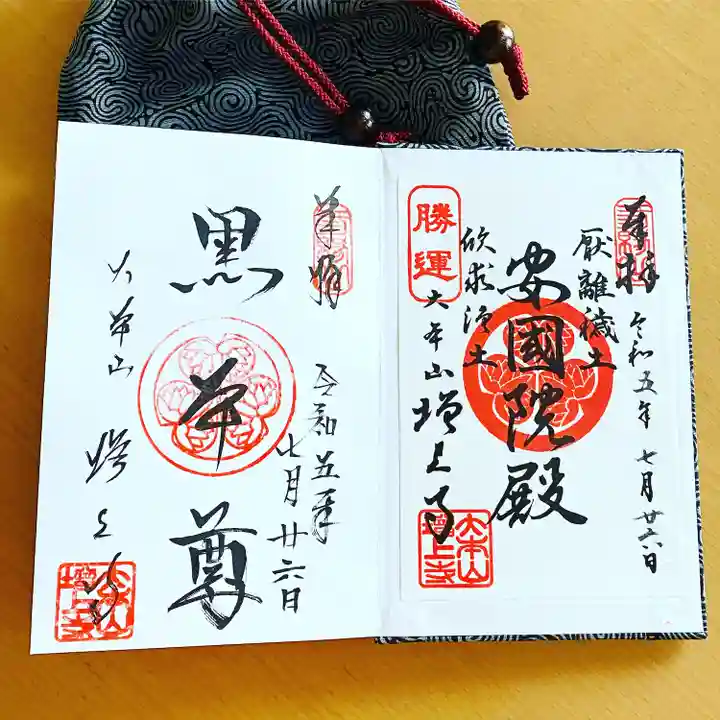 奉拝
厭離穢土
令和五年 七月廿六日
安國院殿
欣求浄土
勝運
大本山 増上寺
大本山
増上寺
奉拝
令和五年
七月廿六日
黒本尊
大本山 増上寺
大本山
増上寺